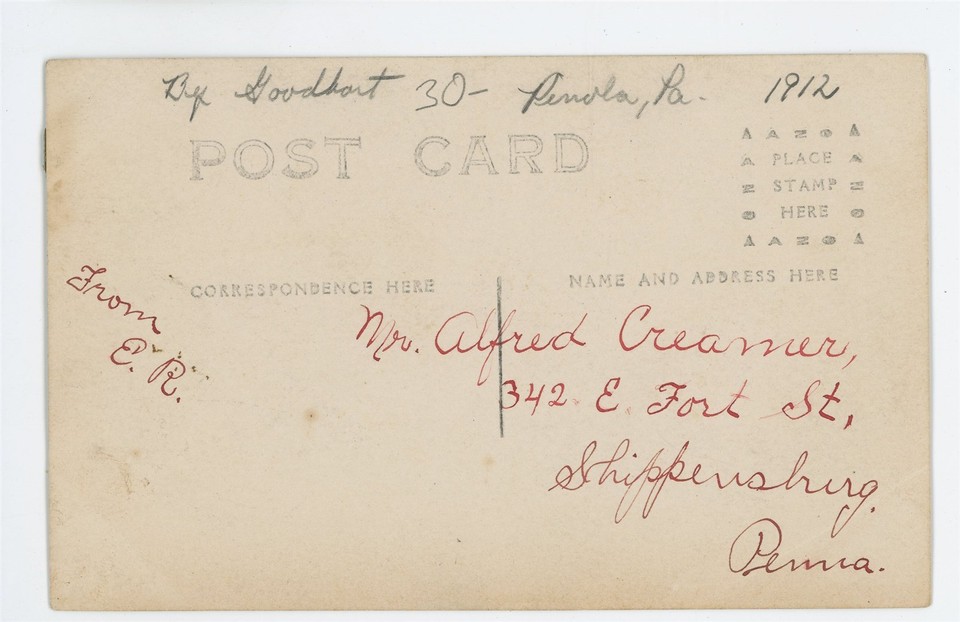 By Goodhart 30- Renola, Pa. 1912
POST CARD
AZO
PLACE
STAMP
HERE
AZO
CORRESPONDENCE HERE
NAME AND ADDRESS HERE
From
E. R.
Mr. Alfred Creamer,
342 E. Fort St.,
Shippensburg,
Penna.